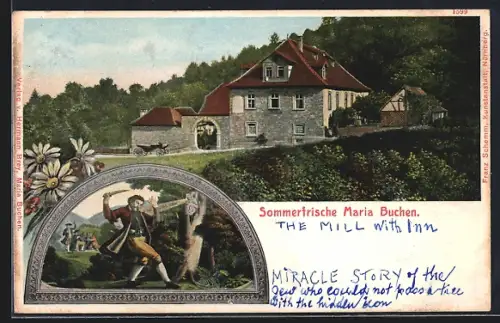 1599
Sommerfrische Maria Buchen.
THE MILL with Inn
MIRACLE STORY of the
Jew who could not pass a tree
with the hidden Icon
Verlag v. Hermann Bray, Maria Buchen.
Franz Schemm, Kunstanstalt, Nürnberg.